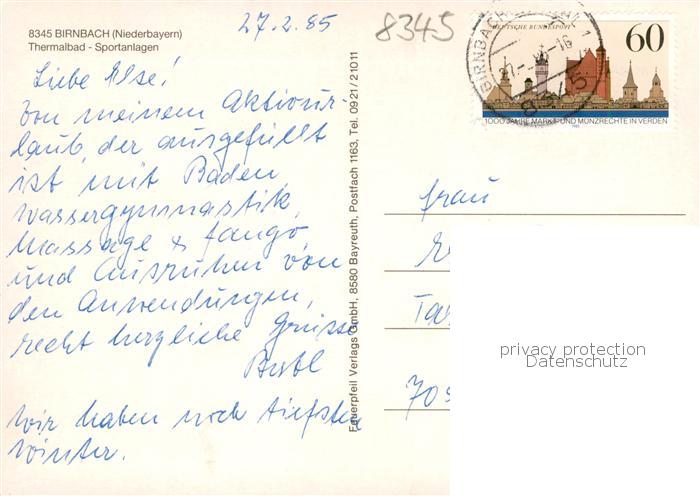 8345 BIRNBACH (Niederbayern)
Thermalbad - Sportanlagen
27.2.85
8345
Liebe Else!
Von meinem Aktivur-
laub, der ausgefüllt
ist mit Baden
Wassergymnastik,
Massage & Fango
und Ausruhen von
den Anwendungen,
recht herzliche Grüsse
Wir haben noch tiefsten
Winter.
Feuerpfeil Verlags GmbH, 8580 Bayreuth, Postfach 1163, Tel. 0921/21011
BIRNBACH
DEUTSCHE BUNDESPOST
60
1000 JAHRE MARKT- UND MÜNZRECHTE IN VERDEN
Frau
70
privacy protection
Datenschutz